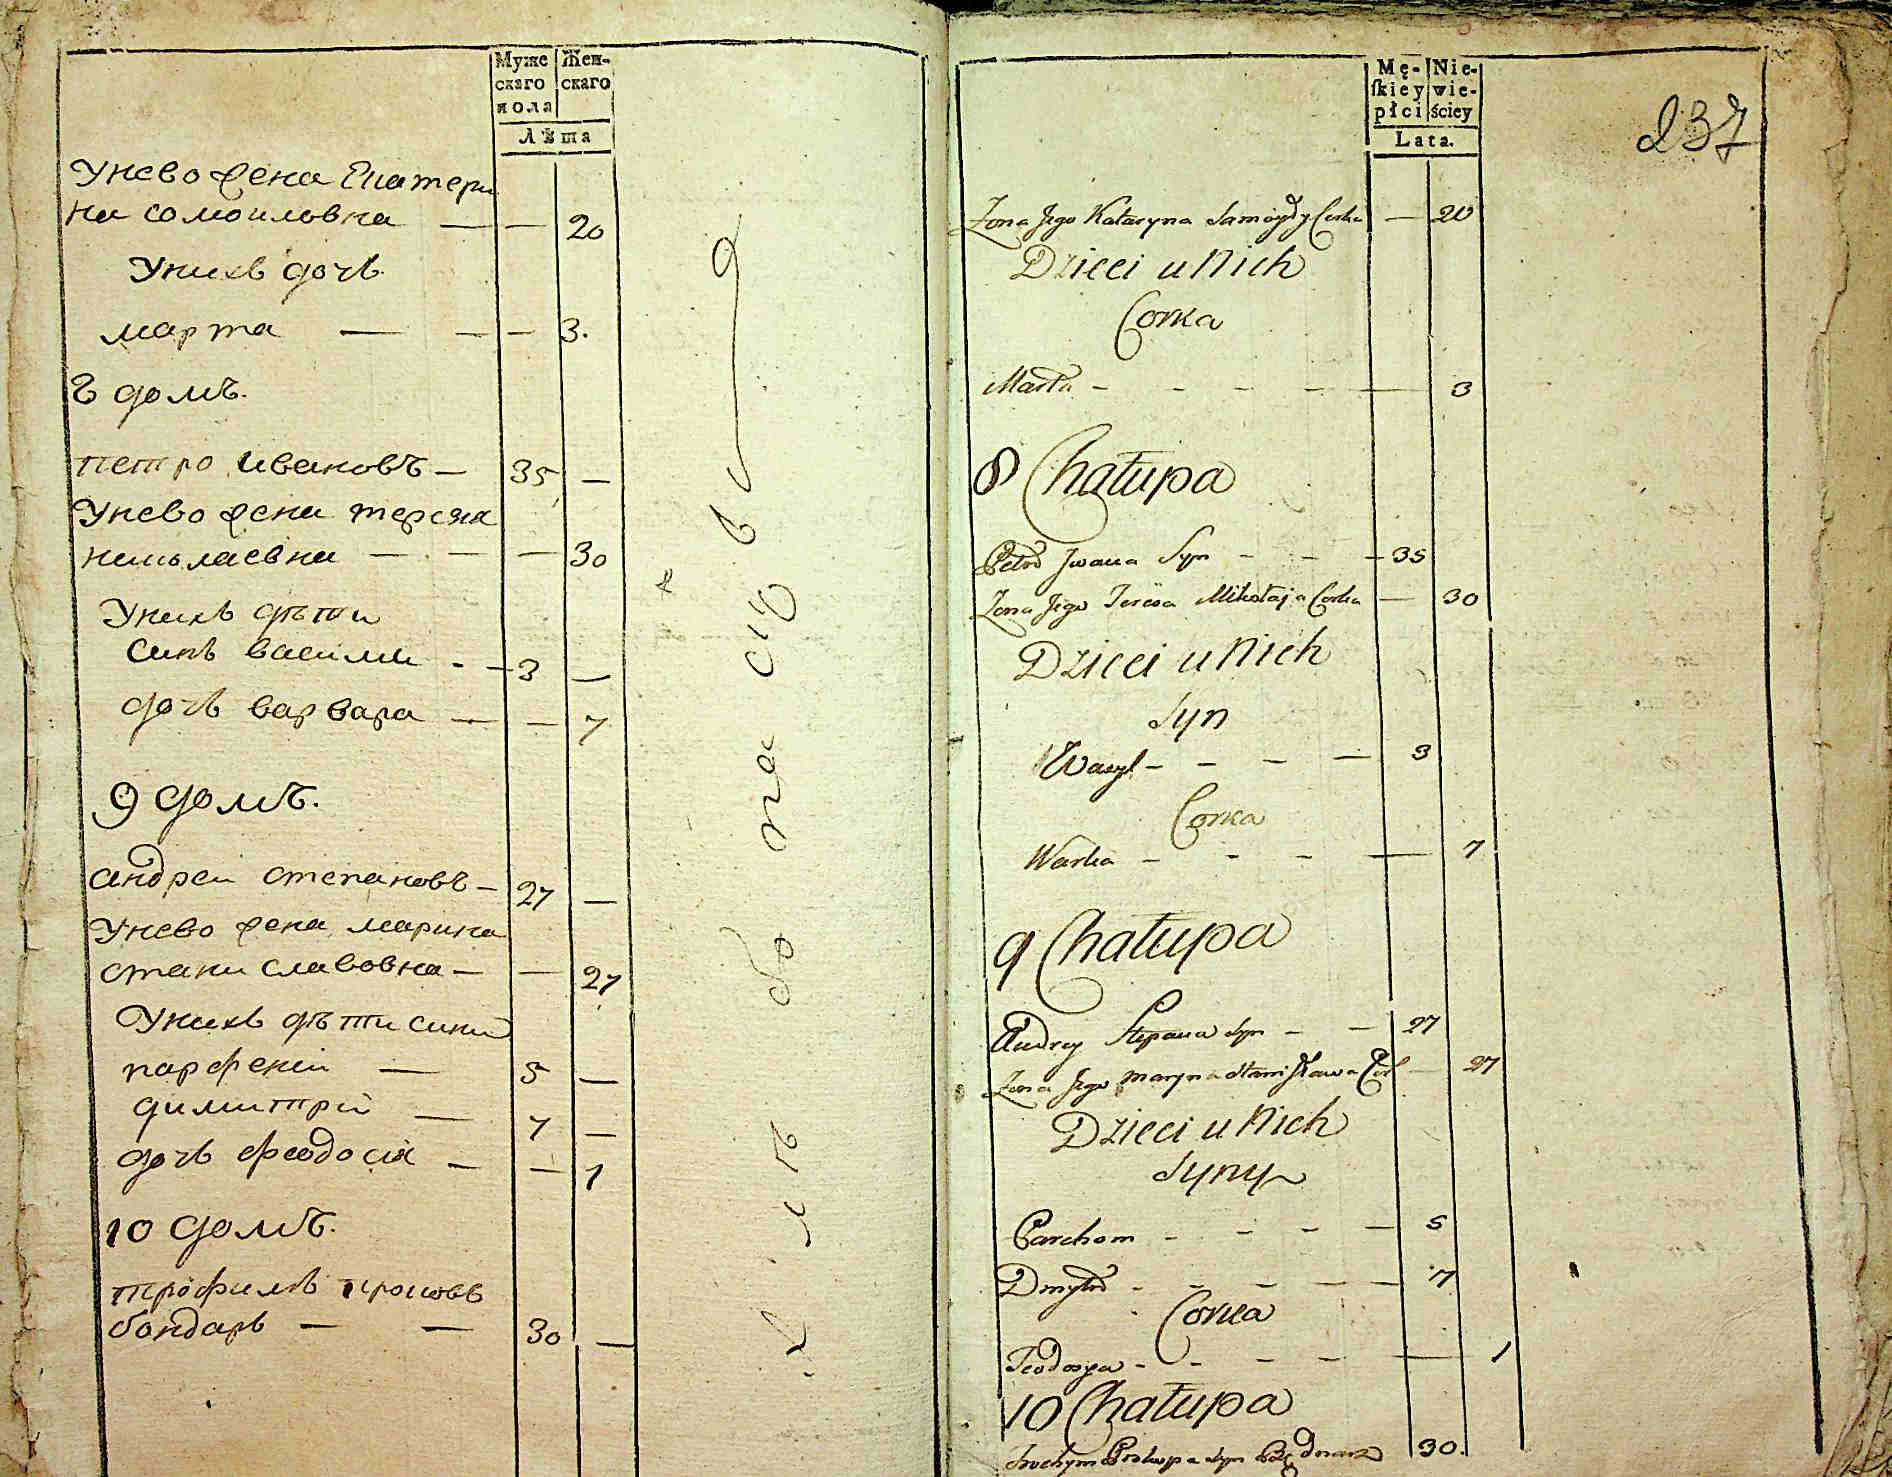 Муже
скаго
пола
Жен-
скаго
Лѣта
Унево жена Екатери
на самоиловна — — 20
Унихъ дочъ
марта — — — 3.
8 домъ.
петро ивановъ — 35 —
Унево жена тереза
— — — 30
Унихъ дѣти
синъ васили - — 3 —
дочъ варвара — — 7
9 домъ.
андреи степановъ — 27 —
Унево жена марина
станиславовна — — 27
Унихъ дѣти сини
парфении — 5 —
димитрии — 7 —
дочъ феодосия — — 1
10 домъ.
трофимъ
бондарь — — 30 —
Mę-
ſkiey
płci
Nie-
wie-
ściey
Lata.
237
Zona Jego Kataryna Samoyły Corka — 20
Dzieci u Nich
Corka
Marta - - - - - — 3
8 Chałupa
Petro Jwana Syn - - — 35
Zona Jego Teresa Mikołaja Corka — 30
Dzieci u Nich
Syn
Wasyl - - - — 3
Corka
Warka - - - — 7
9 Chałupa
Andrey Stepana Syn - — 27
Zona Jego Maryna Stanisława Cor — 27
Dzieci u Nich
Syny
Parchom - - - — 5
Dmytro - - - - — 7
Corka
Teodosya - - - - — 1
10 Chałupa
Trochym Prokopa Syn Bednarz 30.